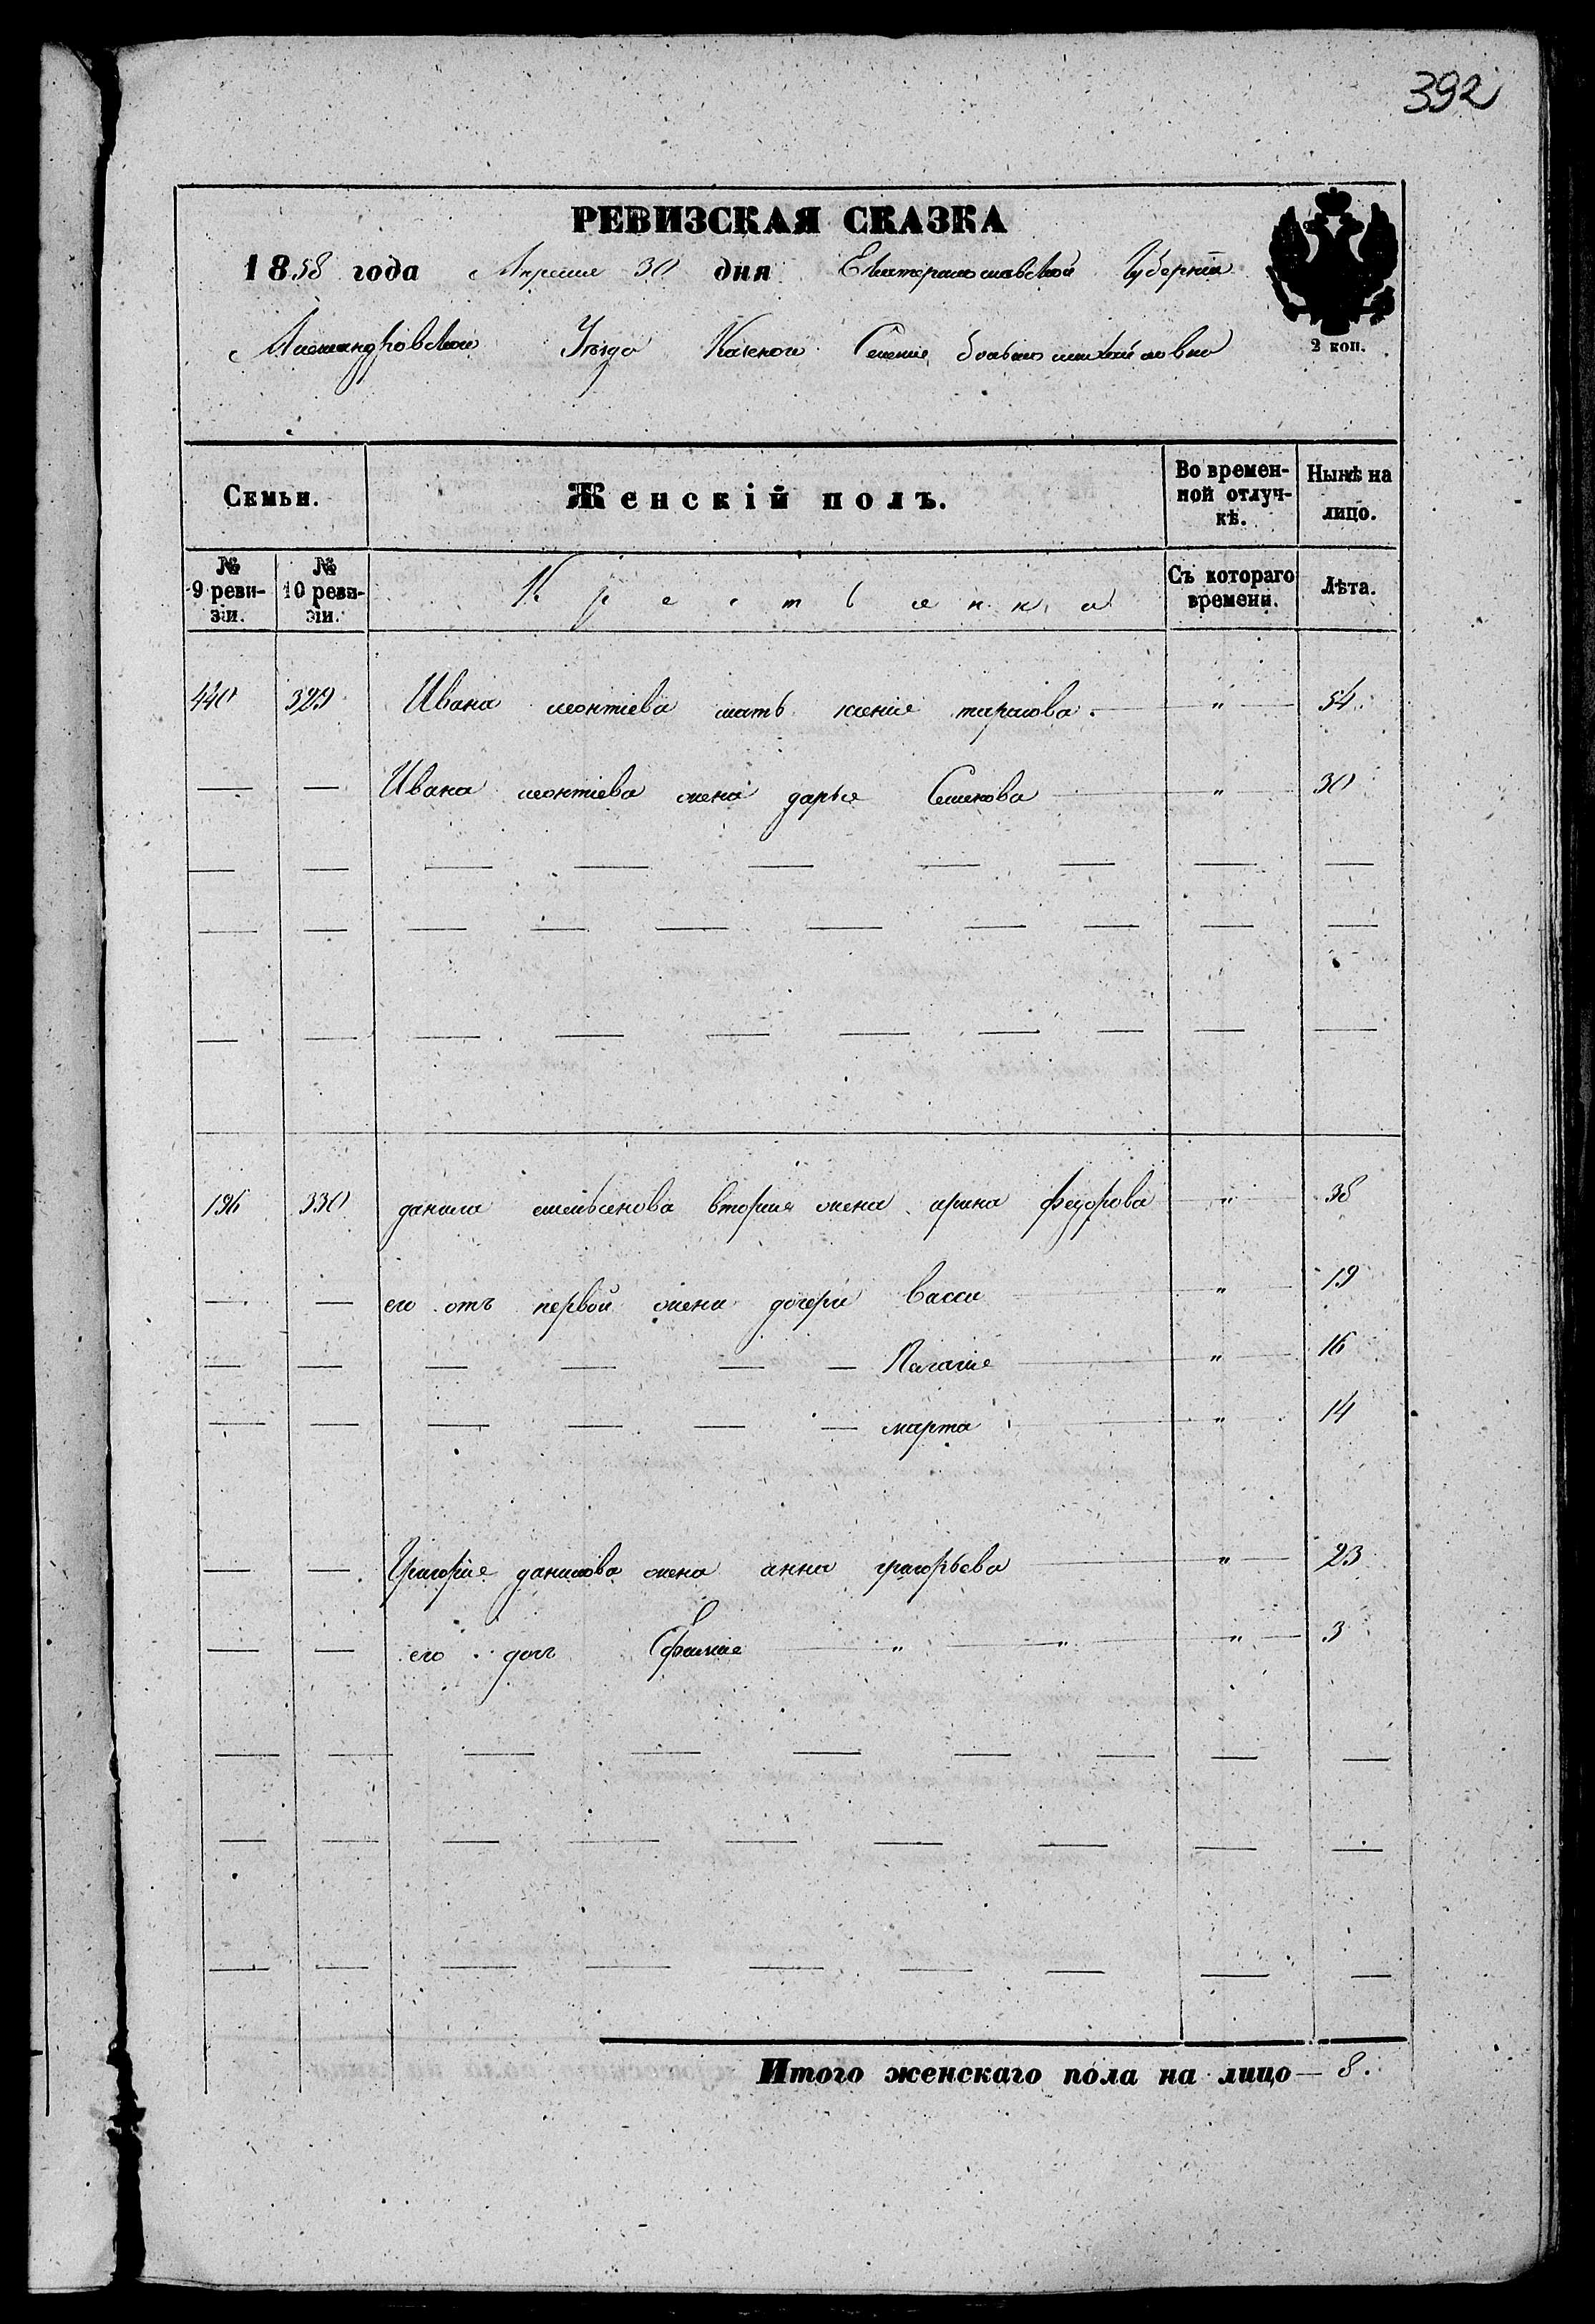 392
РЕВИЗСКАЯ СКАЗКА
1858 года Апреля 30 дня Екатеринославской Губернии
Александровскаго Уѣзда Казеного Селения большомихайловки
2 коп.
Семьи. Женскій полъ. Во времен-ной отлуч-кѣ. Нынѣ на лицо.
№ 9 реви-зіи. № 10 реви-зіи. Крестьянка Съ котораго времени. Лѣта.
440 329 Ивана леонтіева мать ксенія тарасова. — " — 54
— — Ивана леонтіева жена дарья Семенова — " — 30
196 330 данила емельянова вторая жена арина федорова — " — 38
— — его отъ первой жены дочери васса — " — 19
— — — — — — Пелагия — " — 16
— — — — — — марта — " — 14
— — Григорие данилова жена анна григорьева — " — 23
— — его доч Ефимие — " — " — " — 3
Итого женскаго пола на лицо — 8.